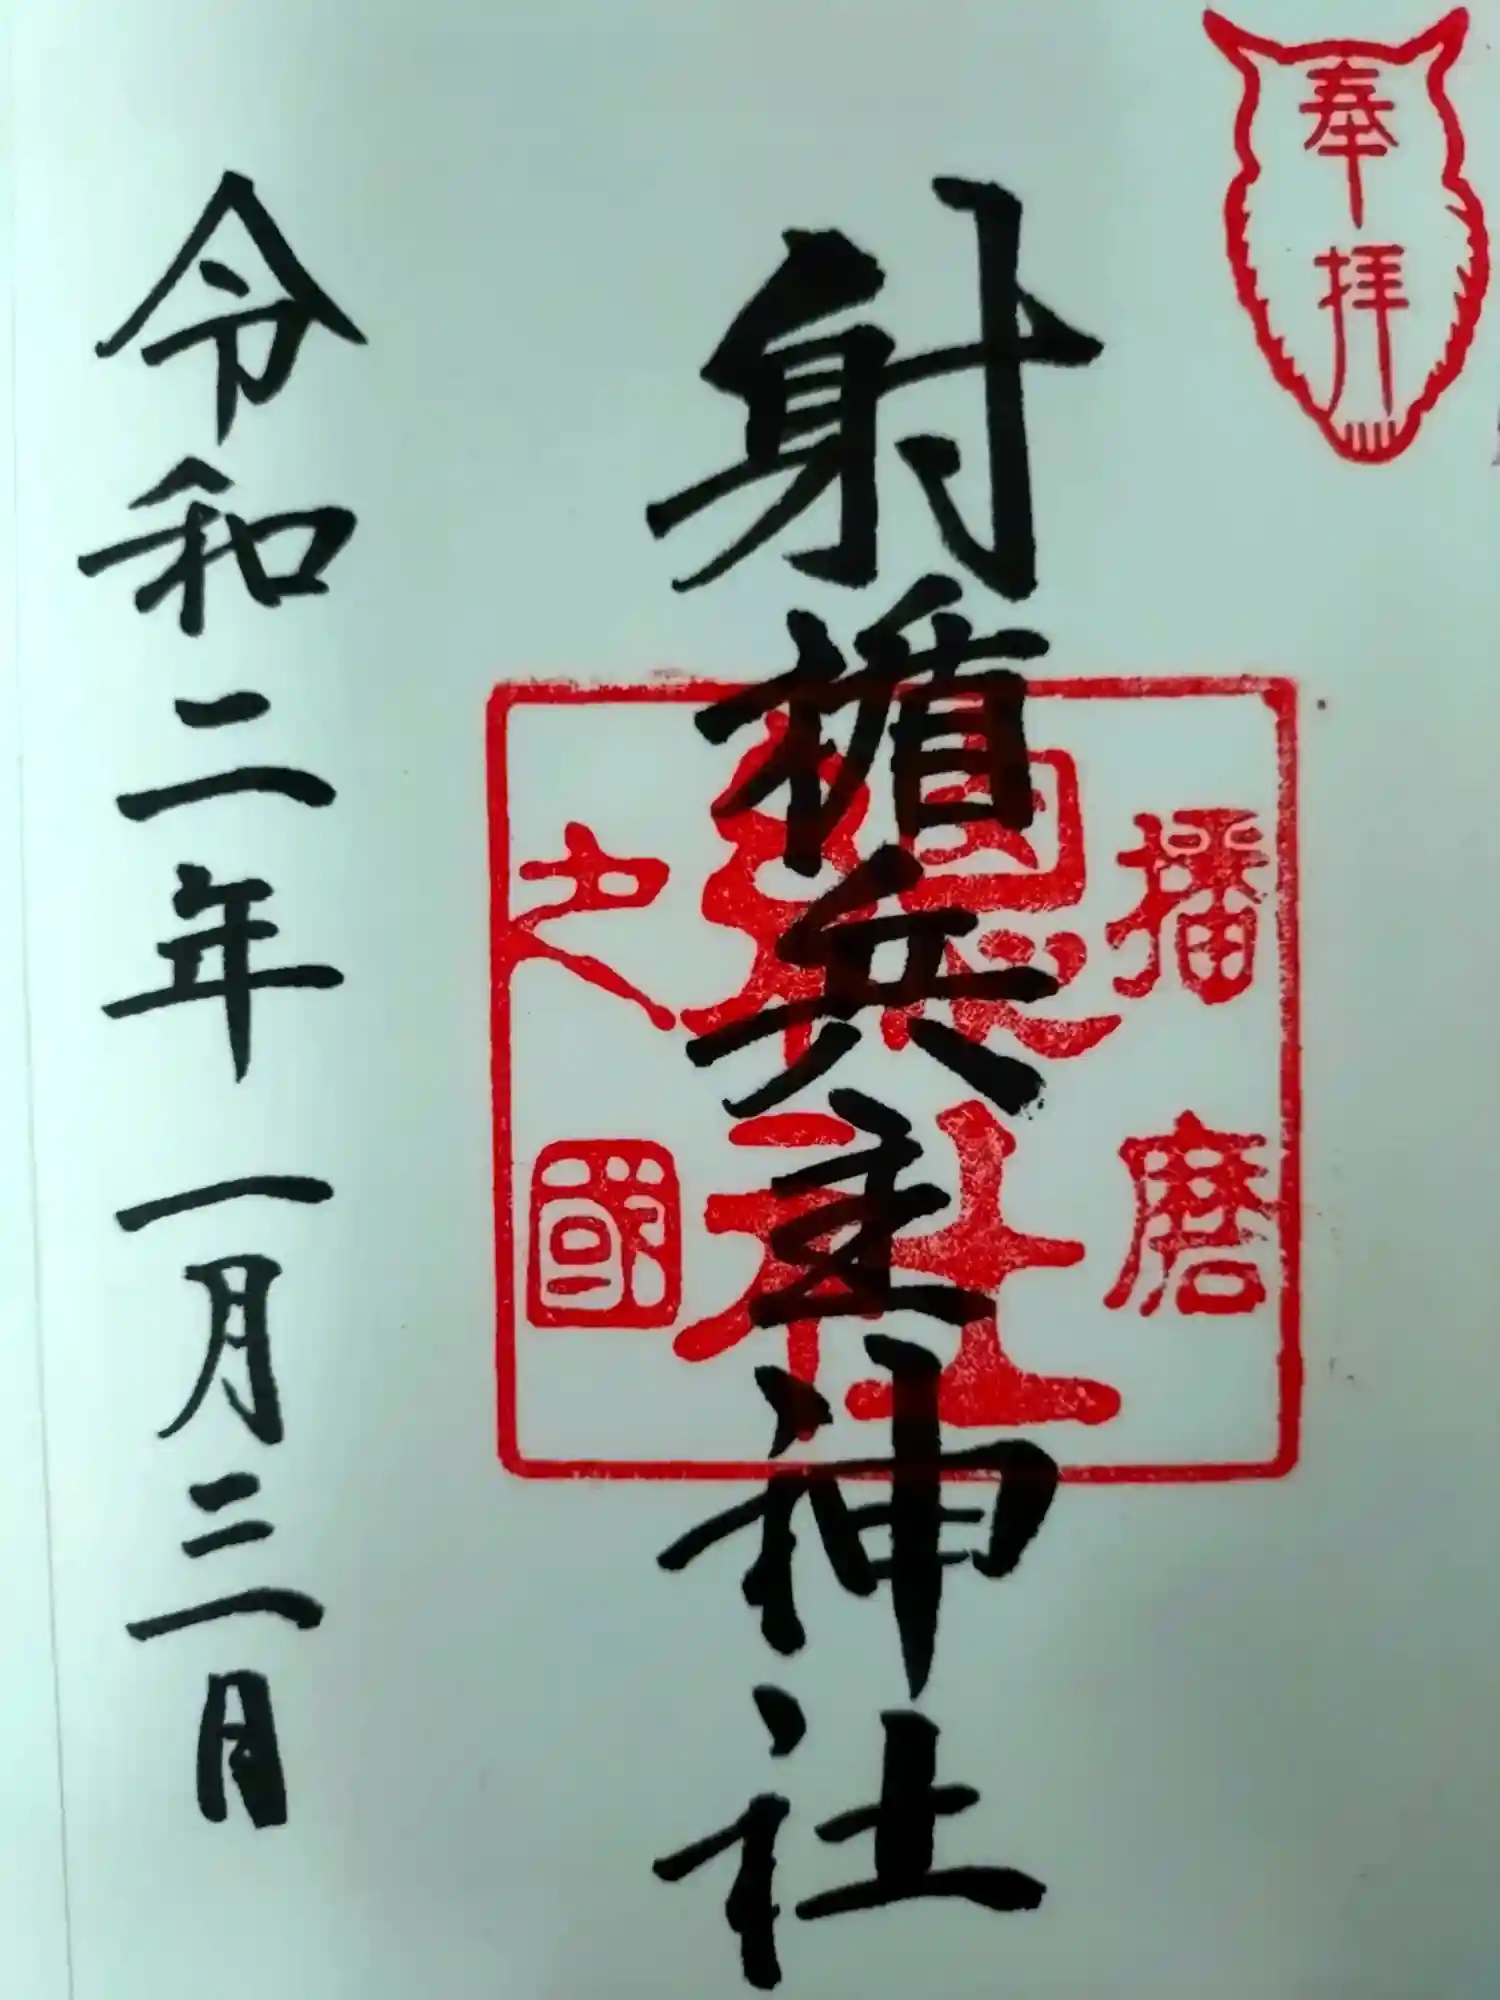 奉拝
射楯兵主神社
播磨
國總社
之國
令和二年一月三日